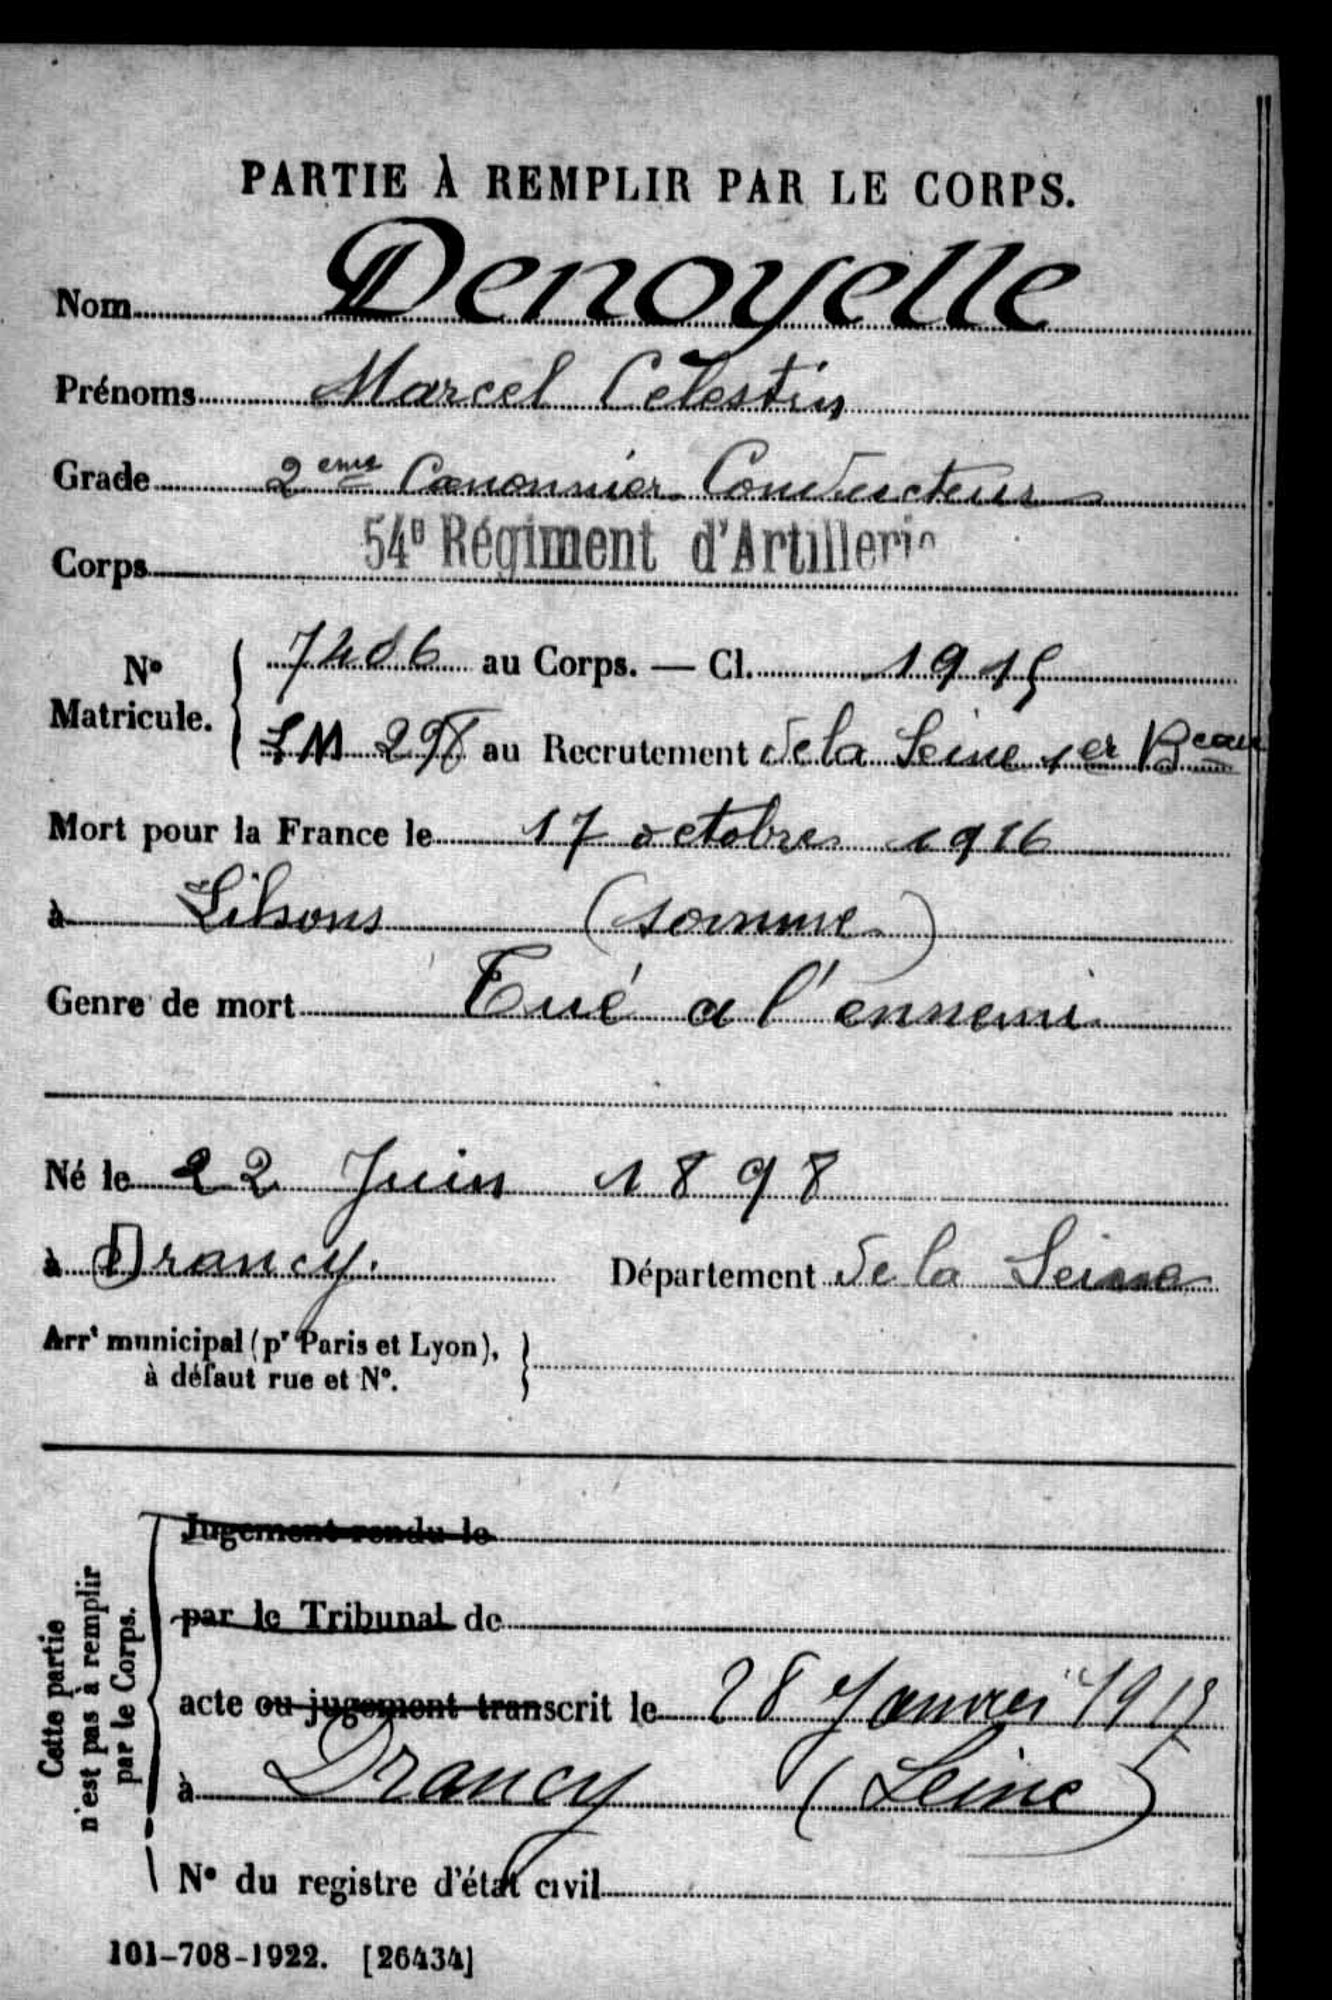 PARTIE À REMPLIR PAR LE CORPS.
Nom Denoyelle
Prénoms Marcel Célestin
Grade 2eme Canonnier Conducteur
Corps 54e Régiment d'Artillerie
No Matricule. 7206 au Corps. — Cl. 1915
LM 298 au Recrutement de la Seine 1er Beau
Mort pour la France le 17 octobre 1916
à Lihons (somme)
Genre de mort Tué a l'ennemi
Né le 22 Juin 1898
à Drancy. Département de la Seine
Arrt municipal (pr Paris et Lyon),
à défaut rue et No.
Cette partie n'est pas à remplir par le Corps.
Jugement rendu le
par le Tribunal de
acte ou jugement transcrit le 28 Janvier 1917
à Drancy (Seine)
No du registre d'état civil
101-708-1922. [26434]